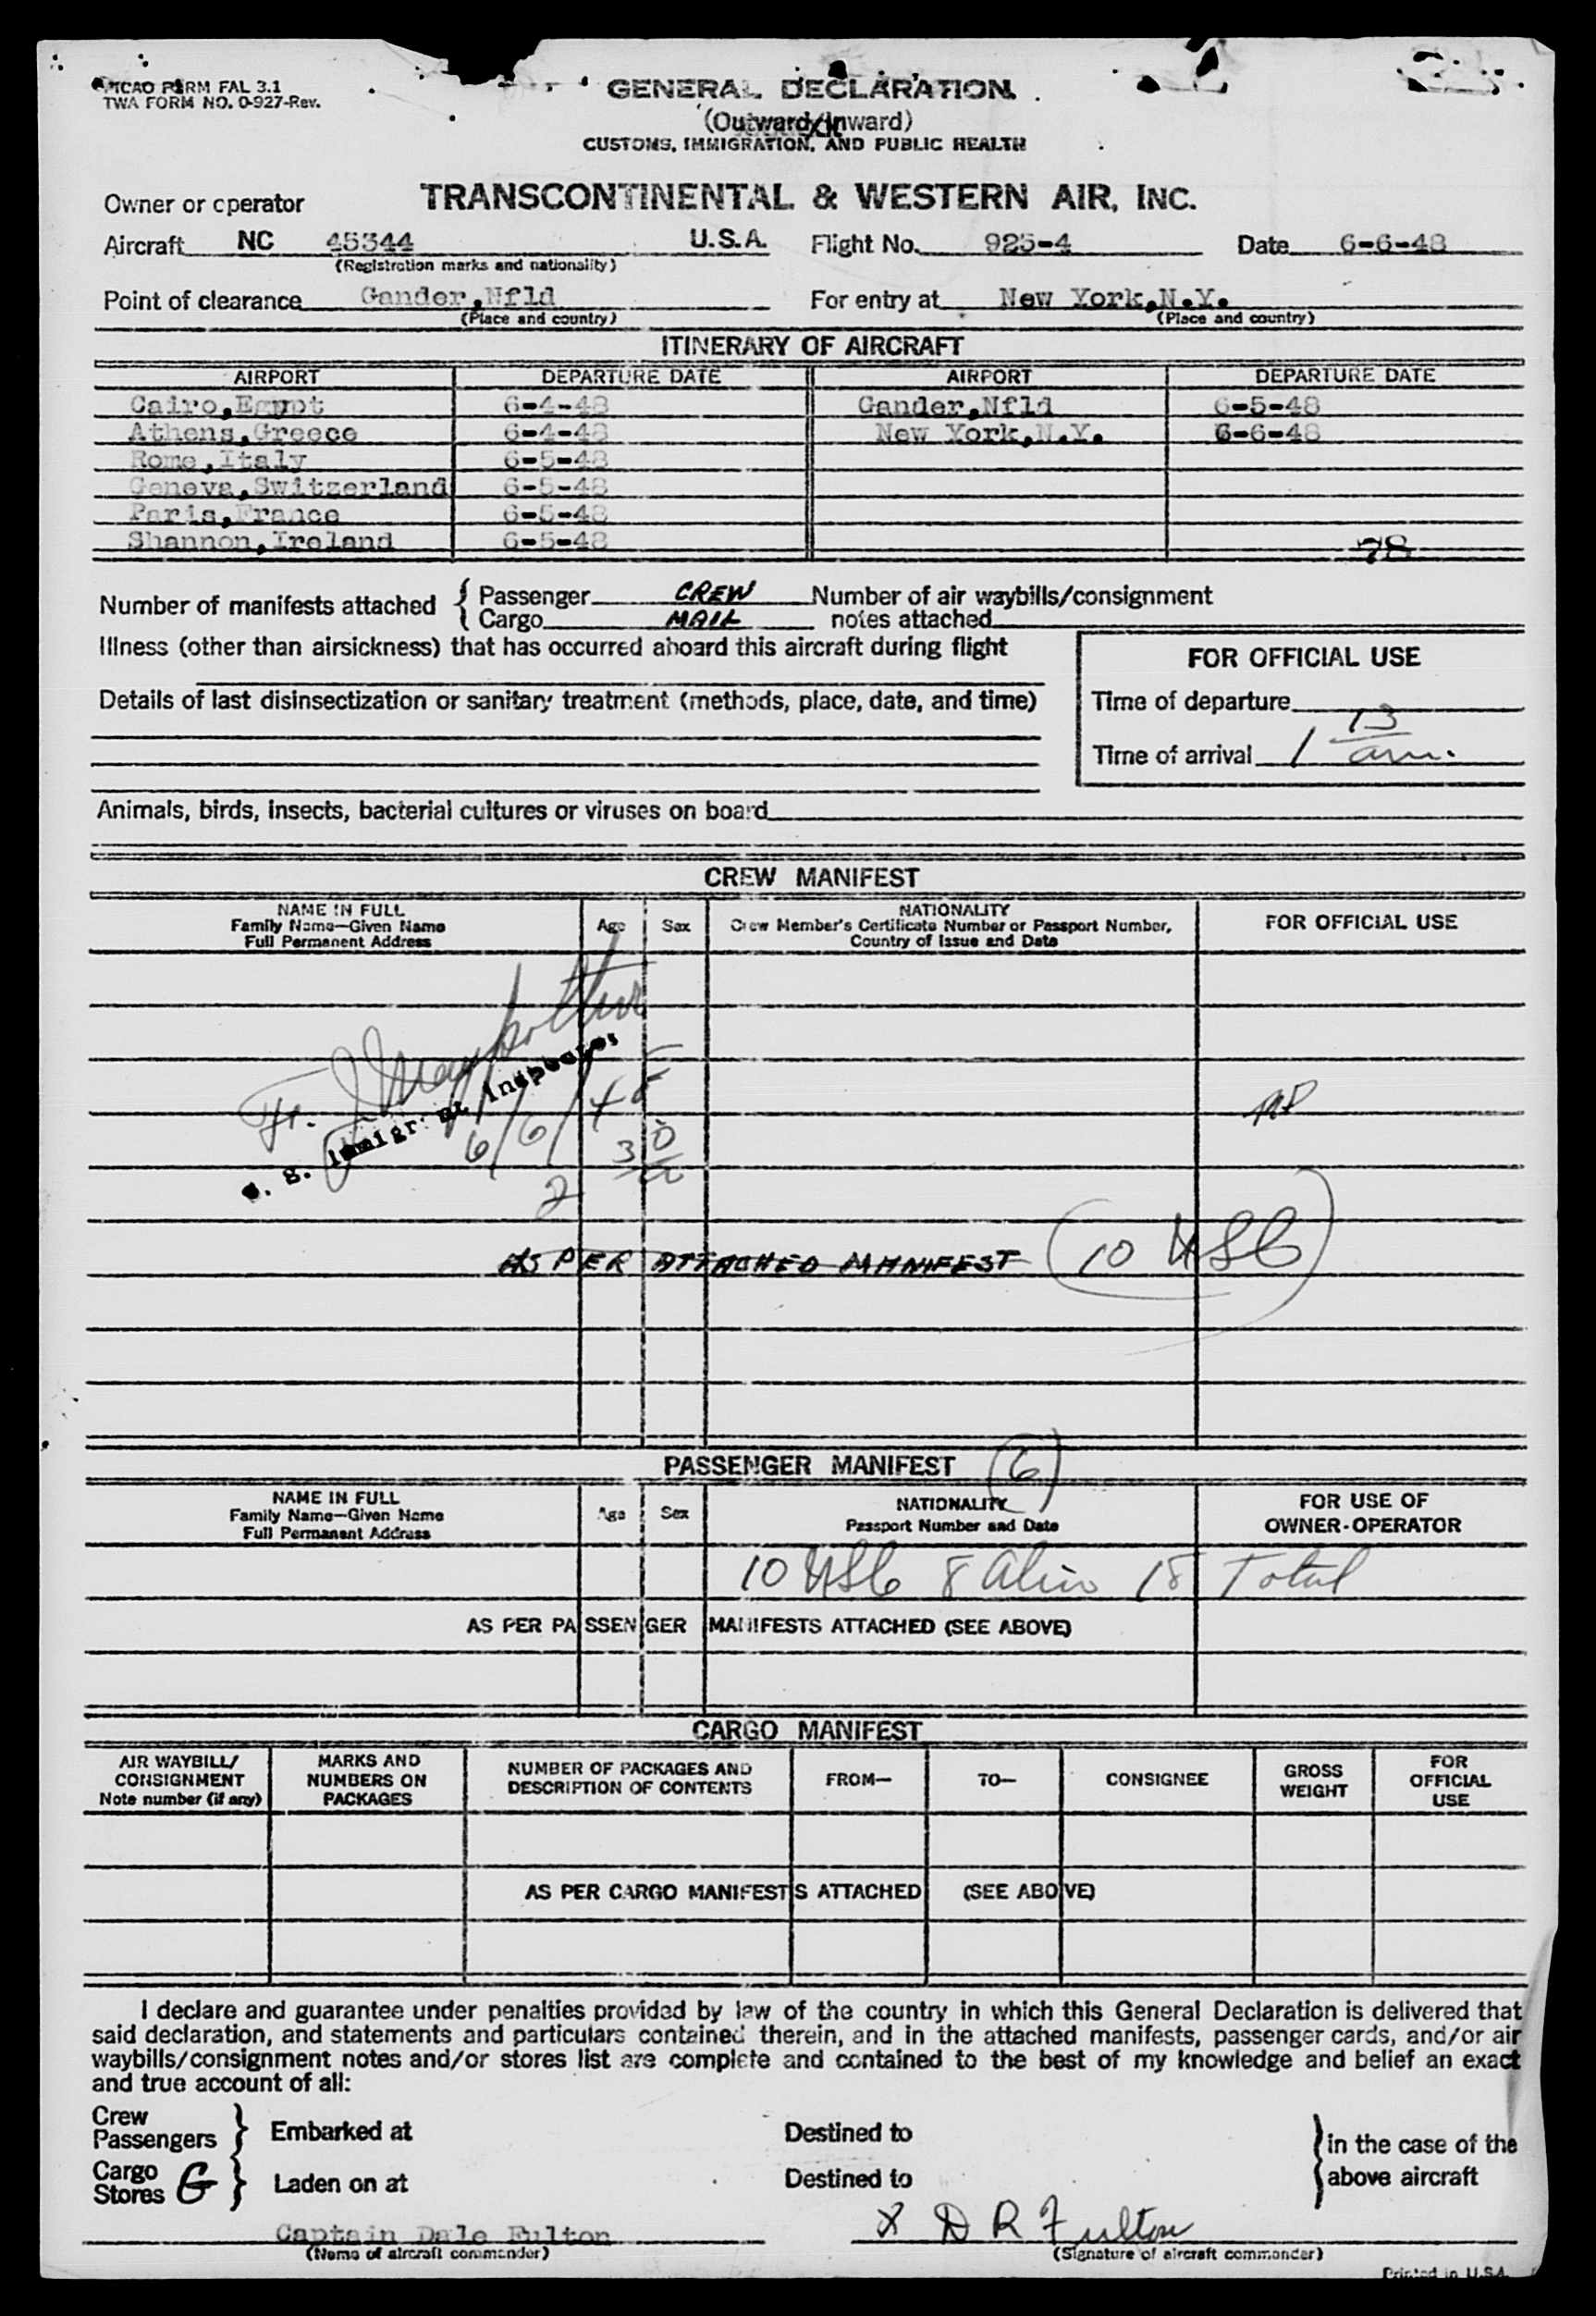 ICAO FORM FAL 3.1
TWA FORM NO. O-927-Rev.
GENERAL DECLARATION
(Outward/Inward)
CUSTOMS, IMMIGRATION, AND PUBLIC HEALTH
Owner or operator TRANSCONTINENTAL & WESTERN AIR, INC.
Aircraft NC 45344 U.S.A. Flight No. 925-4 Date 6-6-48
(Registration marks and nationality)
Point of clearance Gander,Nfld For entry at New York,N.Y.
(Place and country) (Place and country)
ITINERARY OF AIRCRAFT
AIRPORT DEPARTURE DATE AIRPORT DEPARTURE DATE
Cairo,Egypt 6-4-48 Gander,Nfld 6-5-48
Athens,Greece 6-4-48 New York,N.Y. 6-6-48
Rome,Italy 6-5-48
Geneva,Switzerland 6-5-48
Paris,France 6-5-48
Shannon,Ireland 6-5-48 78
Number of manifests attached { Passenger CREW Number of air waybills/consignment
Cargo MAIL notes attached
Illness (other than airsickness) that has occurred aboard this aircraft during flight
FOR OFFICIAL USE
Details of last disinsectization or sanitary treatment (methods, place, date, and time)
Time of departure
Time of arrival 1 13 am.
Animals, birds, insects, bacterial cultures or viruses on board
CREW MANIFEST
NAME IN FULL Age Sex NATIONALITY FOR OFFICIAL USE
Family Name—Given Name Crew Member's Certificate Number or Passport Number,
Full Permanent Address Country of Issue and Date
U. S. Immigrant Inspector
6/6/48
2 30 a
AS PER ATTACHED MANIFEST 10 USC
PASSENGER MANIFEST (6)
NAME IN FULL Age Sex NATIONALITY FOR USE OF
Family Name—Given Name Passport Number and Date OWNER-OPERATOR
Full Permanent Address
10 USC 8 Alien 18 Total
AS PER PASSENGER MANIFESTS ATTACHED (SEE ABOVE)
CARGO MANIFEST
AIR WAYBILL/ MARKS AND NUMBER OF PACKAGES AND FROM— TO— CONSIGNEE GROSS FOR
CONSIGNMENT NUMBERS ON DESCRIPTION OF CONTENTS WEIGHT OFFICIAL
Note number (if any) PACKAGES USE
AS PER CARGO MANIFESTS ATTACHED (SEE ABOVE)
I declare and guarantee under penalties provided by law of the country in which this General Declaration is delivered that
said declaration, and statements and particulars contained therein, and in the attached manifests, passenger cards, and/or air
waybills/consignment notes and/or stores list are complete and contained to the best of my knowledge and belief an exact
and true account of all:
Crew
Passengers } Embarked at Destined to
in the case of the
Cargo
Stores G } Laden on at Destined to above aircraft
Captain Dale Fulton X D R Fulton
(Name of aircraft commander) (Signature of aircraft commander)
Printed in U.S.A.